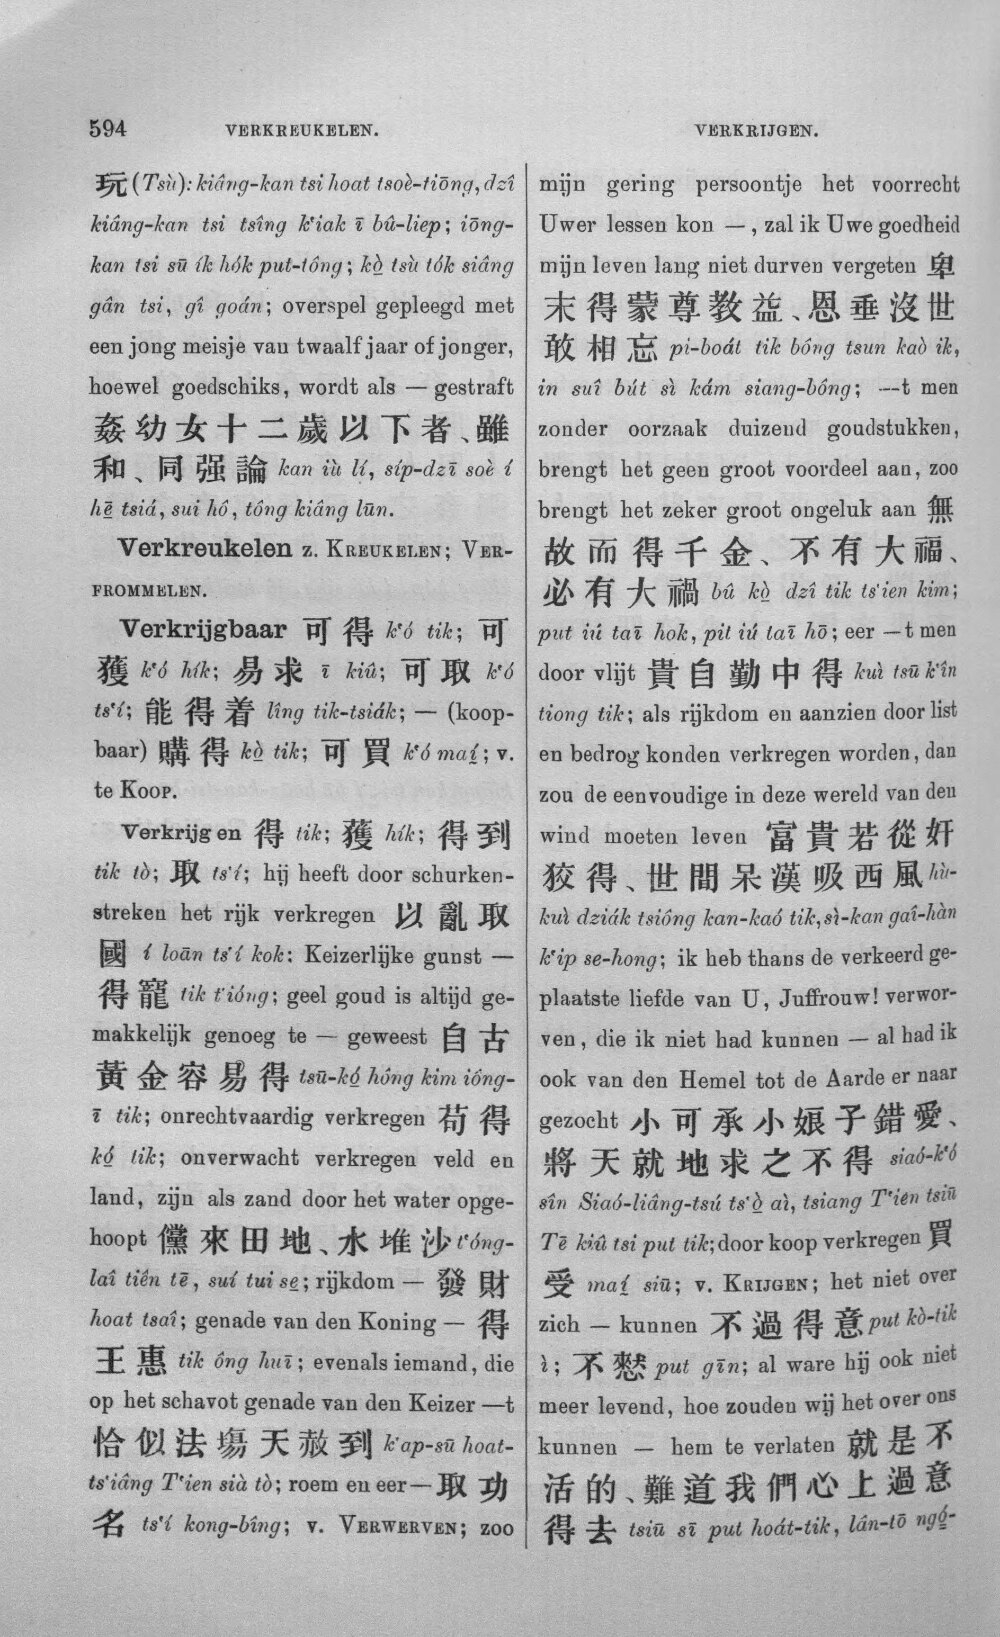 594 VERKREUKELEN. VERKRIJGEN.
玩 (Tsù): kiâng-kan tsi hoat tsoè-tiōng, dzî
kiâng-kan tsi tsîng k‘iak ī bû-liep; iōng-
kan tsi sū ík hók put-tông; kò̱ tsù tók siâng
gân tsi, gî goán; overspel gepleegd met
een jong meisje van twaalf jaar of jonger,
hoewel goedschiks, wordt als — gestraft
姦幼女十二歲以下者、雖
和、同强論 kan iù lí, síp-dzī soè í
hē̱ tsiá, sui hô, tông kiâng lūn.
Verkreukelen z. KREUKELEN; VER-
FROMMELEN.
Verkrijgbaar 可得 k‘ó tik; 可
獲 k‘ó hík; 易求 ī kiû; 可取 k‘ó
ts‘í; 能得着 lîng tik-tsiák; — (koop-
baar) 購得 kò̱ tik; 可買 k‘ó maí̱; v.
te KOOP.
Verkrijgen 得 tik; 獲 hík; 得到
tik tò; 取 ts‘í; hij heeft door schurken-
streken het rijk verkregen 以亂取
國 í loān ts‘í kok: Keizerlijke gunst —
得寵 tik t‘ióng; geel goud is altijd ge-
makkelijk genoeg te — geweest 自古
黃金容易得 tsū-kó̱ hông kim iông-
ī tik; onrechtvaardig verkregen 苟得
kó̱ tik; onverwacht verkregen veld en
land, zijn als zand door het water opge-
hoopt 儻來田地、水堆沙 t‘óng-
laî tiên tē, suí tui se̱; rijkdom — 發財
hoat tsaî; genade van den Koning — 得
王惠 tik ông huī; evenals iemand, die
op het schavot genade van den Keizer —t
恰似法塲天赦到 k‘ap-sū hoat-
ts‘iâng T‘ien sià tò; roem en eer — 取功
名 ts‘í kong-bîng; v. VERWERVEN; zoo
mijn gering persoontje het voorrecht
Uwer lessen kon —, zal ik Uwe goedheid
mijn leven lang niet durven vergeten 卑
末得蒙尊教益、恩垂沒世
敢相忘 pi-boát tik bông tsun kaò ik,
in suî bút sì kám siang-bông; —t men
zonder oorzaak duizend goudstukken,
brengt het geen groot voordeel aan, zoo
brengt het zeker groot ongeluk aan 無
故而得千金、不有大福、
必有大禍 bû kò̱ dzî tik ts‘ien kim;
put iú taī hok, pit iú taī hō; eer —t men
door vlijt 貴自勤中得 kuì tsū k‘în
tiong tik; als rijkdom en aanzien door list
en bedrog konden verkregen worden, dan
zou de eenvoudige in deze wereld van den
wind moeten leven 富貴若從奸
狡得、世間呆漢吸西風 hù-
kuì dziák tsiông kan-kaó tik, sì-kan gaî-hàn
k‘ip se-hong; ik heb thans de verkeerd ge-
plaatste liefde van U, Juffrouw! verwor-
ven, die ik niet had kunnen — al had ik
ook van den Hemel tot de Aarde er naar
gezocht 小可承小娘子錯愛、
將天就地求之不得 siaó-k‘ó
sîn Siaó-liâng-tsú ts‘ò̱ aì, tsiang T‘ien tsiū
Tē kiû tsi put tik; door koop verkregen 買
受 maí̱ siū; v. KRIJGEN; het niet over
zich — kunnen 不過得意 put kò-tik
ì; 不憖 put gīn; al ware hij ook niet
meer levend, hoe zouden wij het over ons
kunnen — hem te verlaten 就是不
活的、難道我們心上過意
得去 tsiū sī put hoát-tik, lân-tō ngó̱-